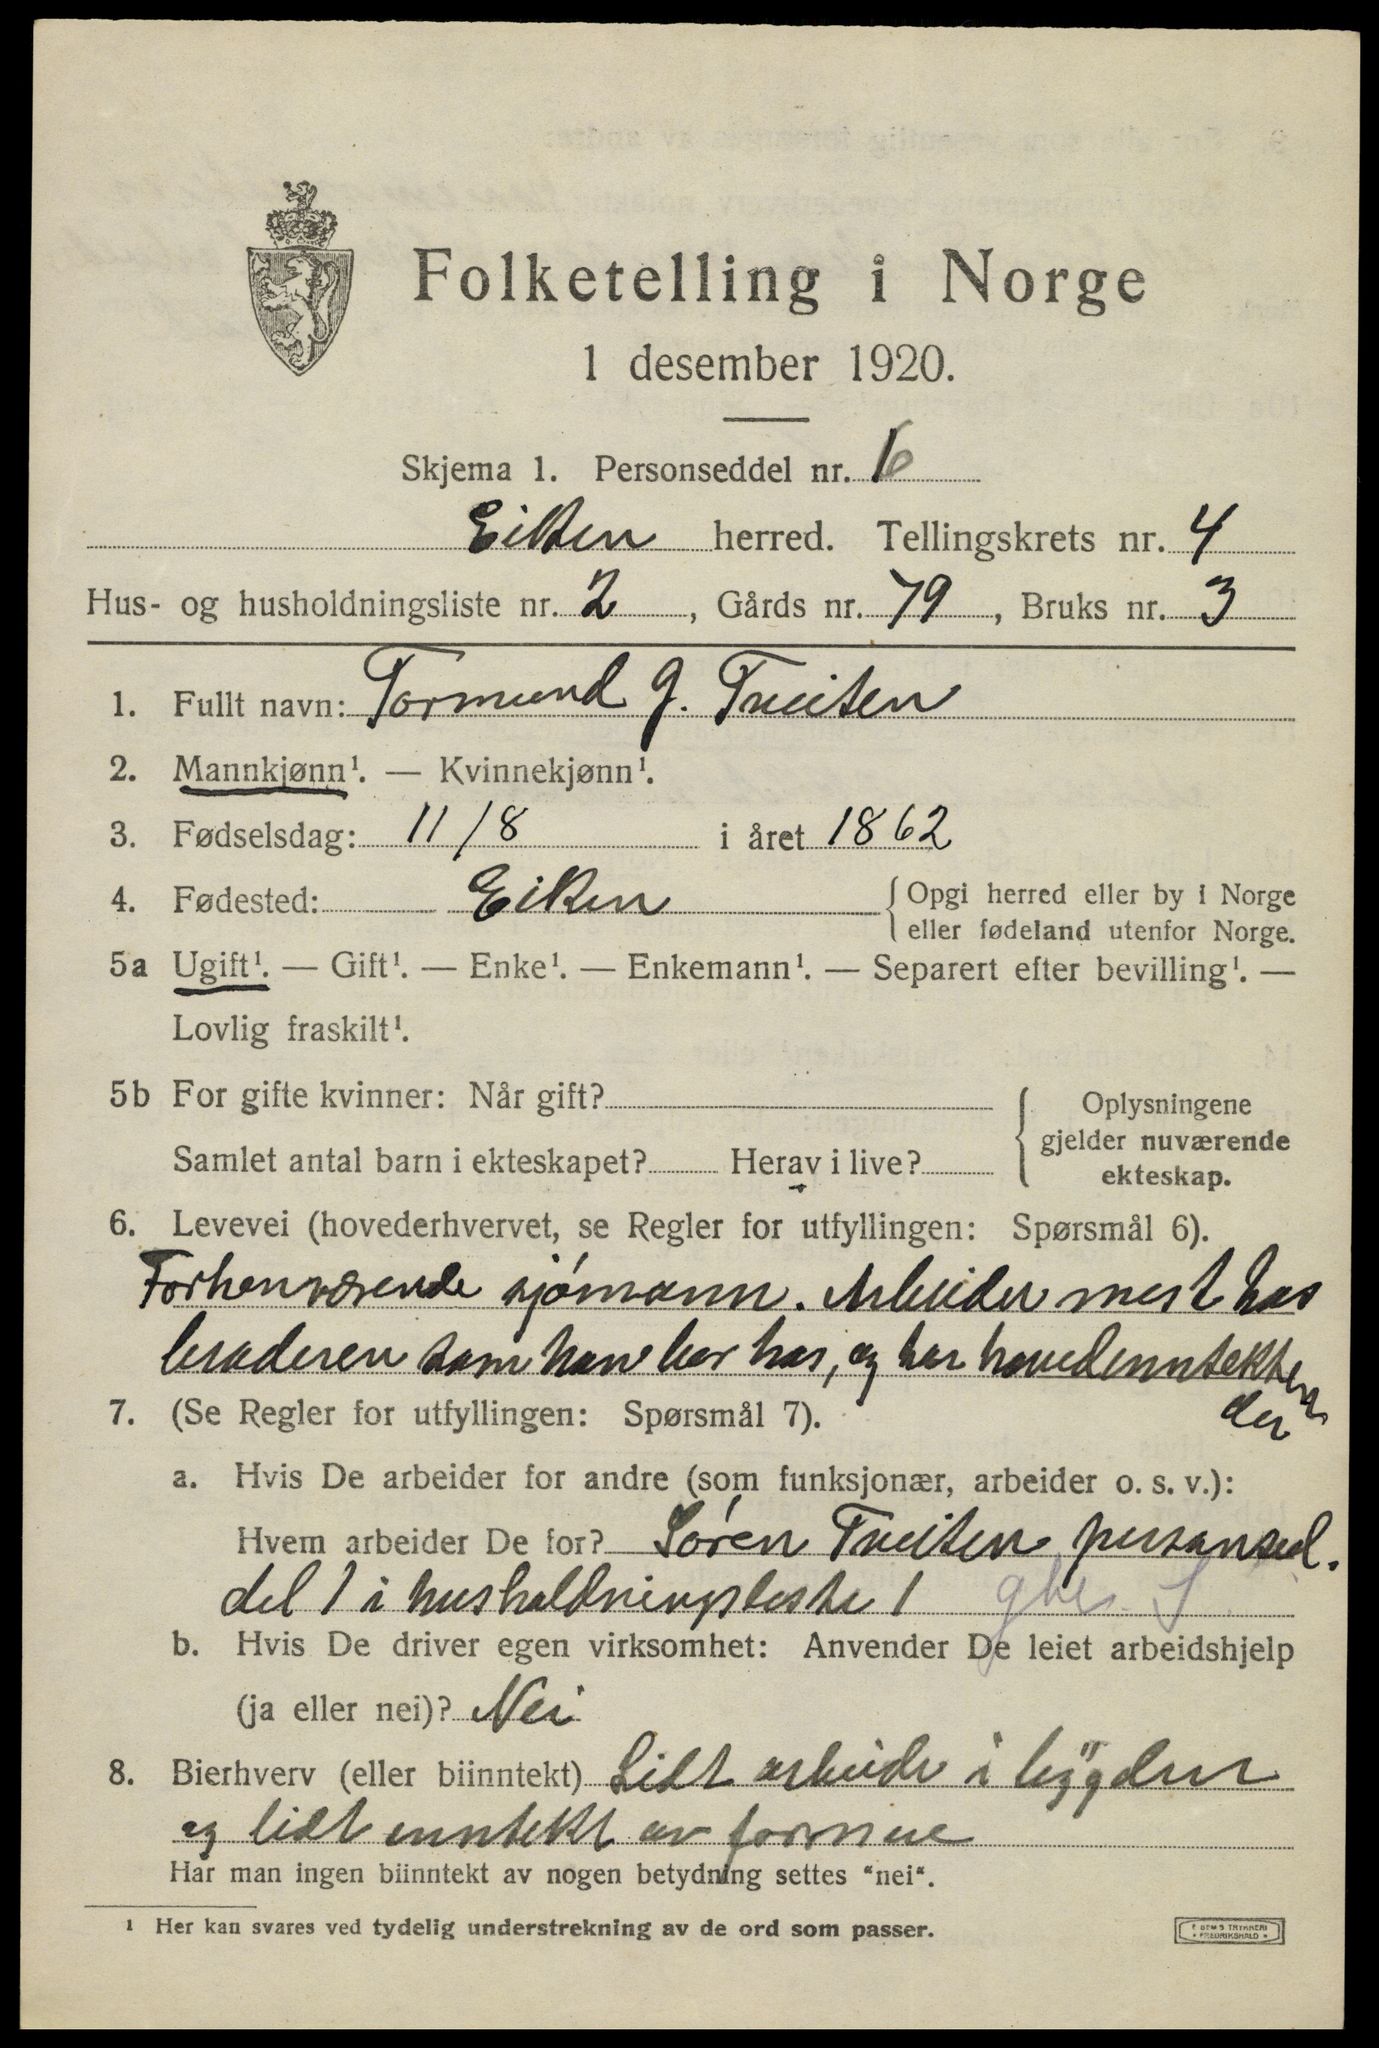 Folketelling i Norge
1 desember 1920.
Skjema 1. Personseddel nr. 6
Eiken herred. Tellingskrets nr. 4
Hus- og husholdningsliste nr. 2, Gårds nr. 79, Bruks nr. 3
1. Fullt navn: Tormund G. Tveiten
2. Mannkjønn¹. — Kvinnekjønn¹.
3. Fødselsdag: 11/8 i året 1862
4. Fødested: Eiken { Opgi herred eller by i Norge
eller fødeland utenfor Norge.
5a Ugift¹. — Gift¹. — Enke¹. — Enkemann¹. — Separert efter bevilling¹. —
Lovlig fraskilt¹.
5b For gifte kvinner: Når gift?
Samlet antal barn i ekteskapet? Herav i live?
Oplysningene
gjelder nuværende
ekteskap.
6. Levevei (hovederhvervet, se Regler for utfyllingen: Spørsmål 6).
Forhenværende sjómann. Arbeider mest hos
broderen som han bor hos, og har hovedinntekten
der
7. (Se Regler for utfyllingen: Spørsmål 7).
a. Hvis De arbeider for andre (som funksjonær, arbeider o. s. v.):
Hvem arbeider De for? Sóren Tveiten personsed-
del 1 i husholdningsliste 1 gbr. S
b. Hvis De driver egen virksomhet: Anvender De leiet arbeidshjelp
(ja eller nei)? Nei
8. Bierhverv (eller biinntekt) Lidt arbeide i bygden
og lidt inntekt av formue
Har man ingen biinntekt av nogen betydning settes "nei".
¹ Her kan svares ved tydelig understrekning av de ord som passer.
TRYKKERI
FREDRIKSHALD